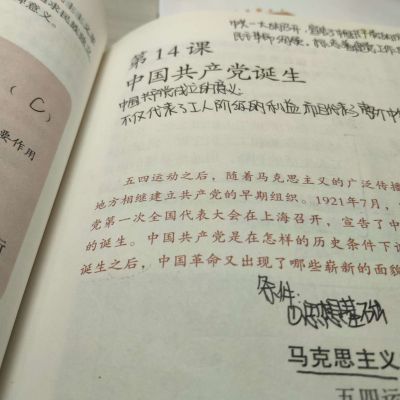 主主义革
求民族独立
意义。
(C)
要作用
第14课
中国共产党诞生
中国共产党成立的意义:
不仅代表了工人阶级的利益 而且代表了
五四运动之后，随着马克思主义的广泛传播
地方相继建立共产党的早期组织。1921年7月，
党第一次全国代表大会在上海召开，宣告了中
的诞生。中国共产党是在怎样的历史条件下
诞生之后，中国革命又出现了哪些崭新的面貌
条件:
①思想基础
马克思主义
五四运